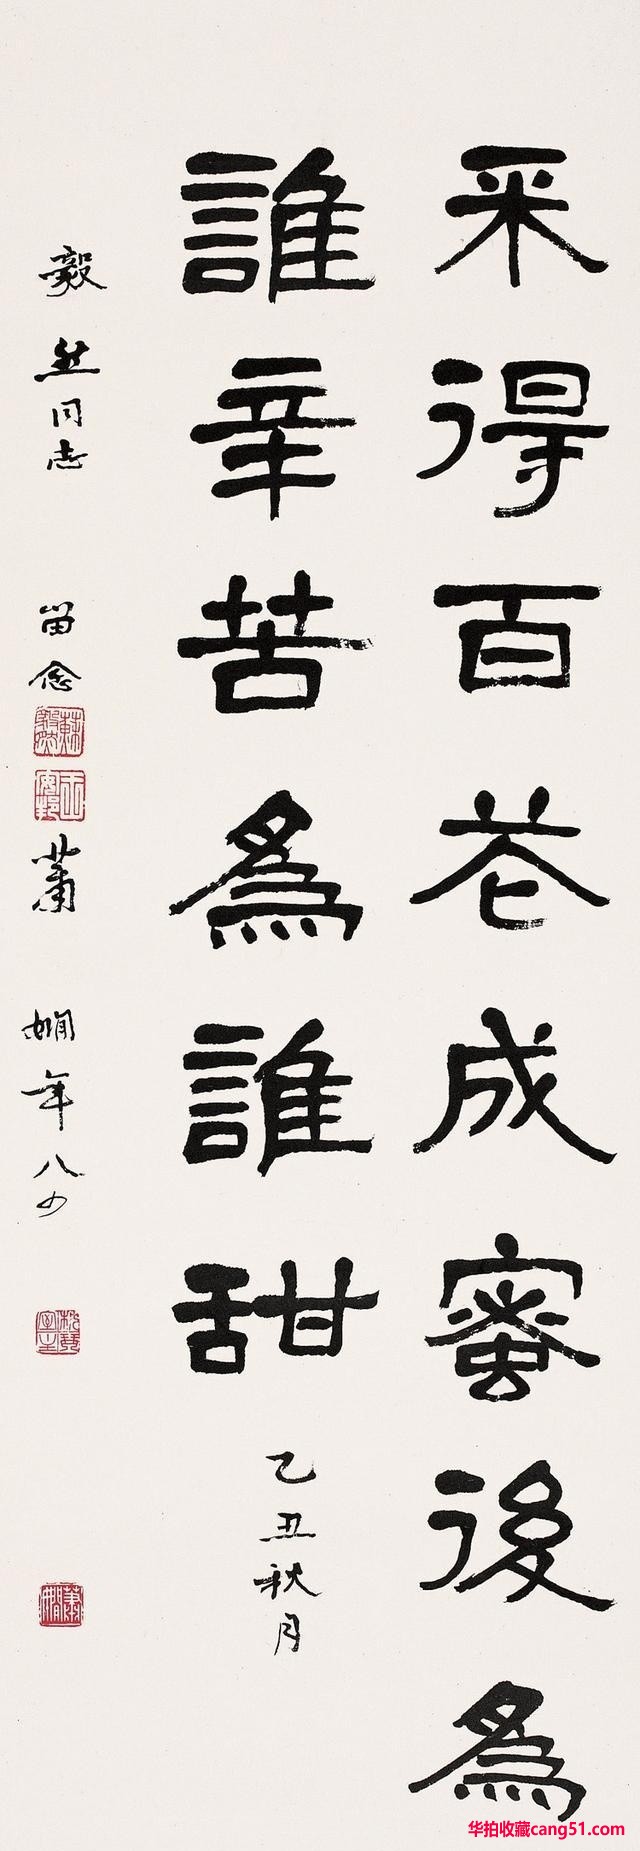 采得百花成蜜後爲
誰辛苦爲誰甜
乙丑秋月
毅然同志
留念
蕭
嫻年八
华拍收藏cang51.com